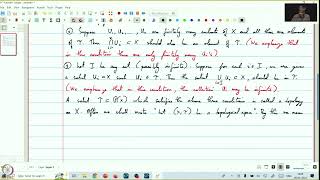 ② Suppose U₁, U₂, ..., Uₙ are finitely many subsets of X and all these are elements
of T. Then ⋂ Uᵢ ⊂ X should also be an element of T. (We emphasize that
in this condition there are only finitely many Uᵢ's)
③ Let I be any set (possibly infinite). Suppose for each i ∈ I, we are given
a subset Uᵢ ⊂ X such Uᵢ ∈ T. Then the subset ⋃ Uᵢ ⊂ X, should be in T.
(We emphasize that in this condition, the collection Uᵢ may be infinite).
A subset T ⊂ P(X) which satisfies the above three conditions is called a topology
on X. Often we shall write "Let (X, T) be a topological space". By this we mean